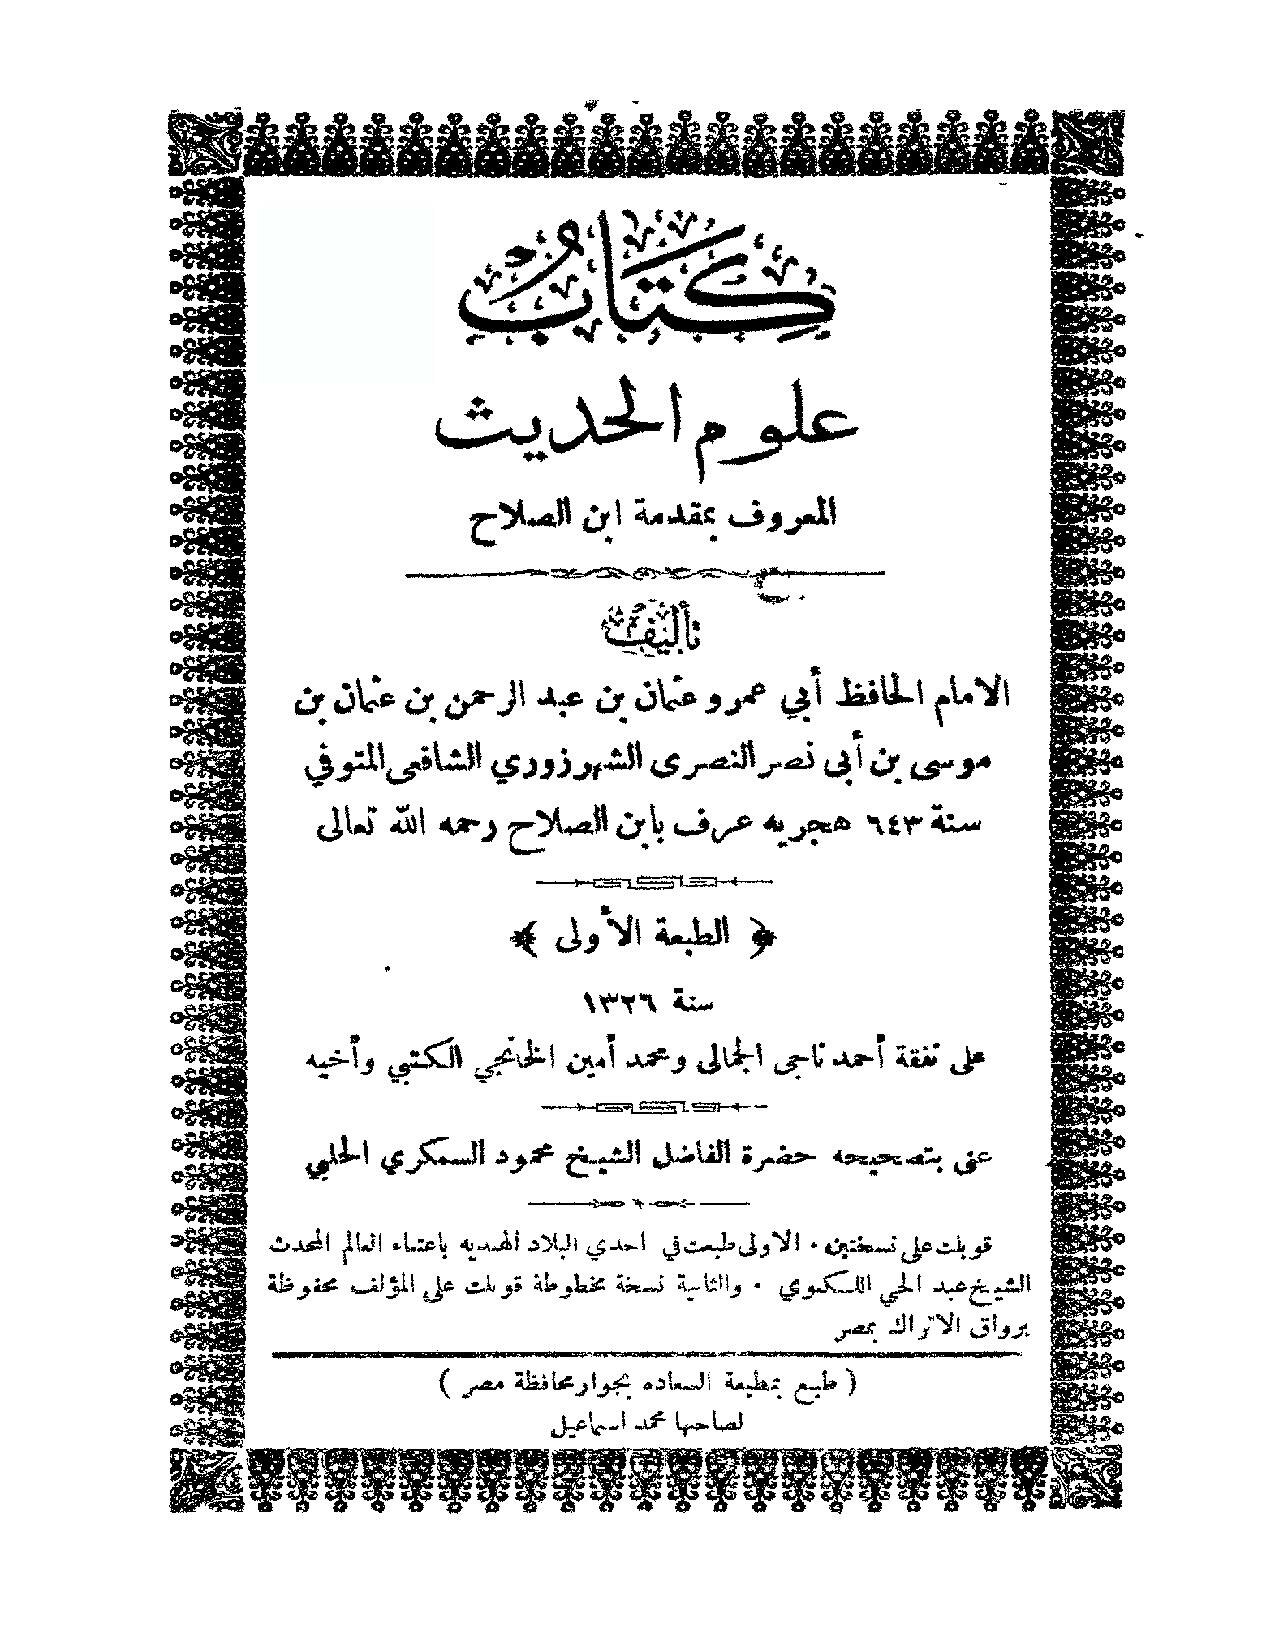 كتاب
علوم الحديث
المعروف بمقدمة ابن الصلاح
تأليف
الامام الحافظ أبي عمرو عثمان بن عبد الرحمن بن عثمان بن
موسى بن أبى نصر النصرى الشهرزوري الشافعى المتوفي
سنة ٦٤٣ هجريه عرف بابن الصلاح رحمه الله تعالى
﴿ الطبعة الأولى ﴾
سنة ١٣٢٦
على نفقة أحمد ناجى الجمالى ومحمد أمين الخانجي الكتبي وأخيه
عنى بتصحيحه حضرة الفاضل الشيخ محمود السمكري الحلبي
قوبلت على نسختين · الاولى طبعت في احدي البلاد الهنديه باعتناء العالم المحدث
الشيخ عبد الحي اللكنوي · والثانية نسخة مخطوطة قوبلت على المؤلف محفوظة
برواق الاتراك بمصر
( طبع بمطبعة السعاده بجوار محافظة مصر )
لصاحبها محمد اسماعيل